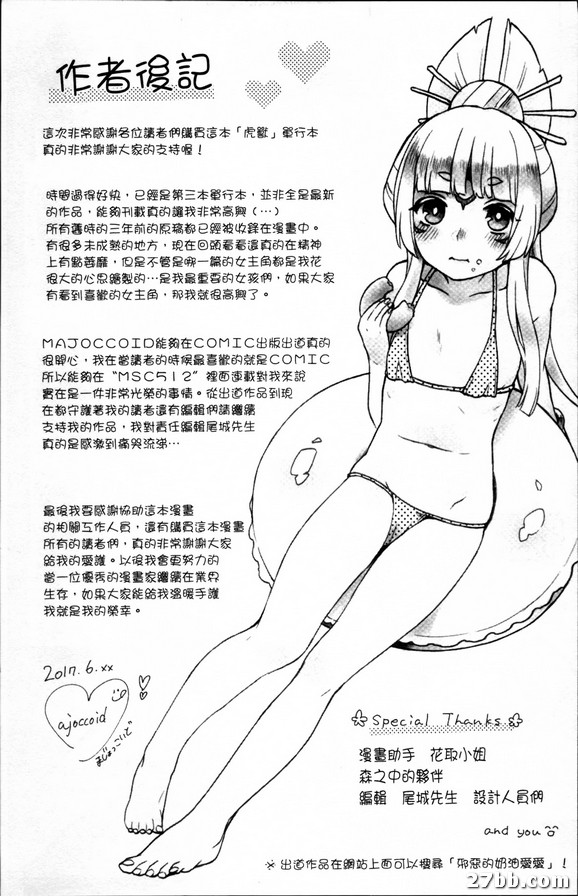 作者後記
這次非常感謝各位讀者們購買這本「虎獄」單行本
真的非常謝謝大家的支持喔！
時間過得好快，已經是第三本單行本，並非全是最新
的作品，能夠刊載真的讓我非常高興（…）
所有舊時的三年前的原稿都已經被收錄在漫畫中。
有很多未成熟的地方，現在回頭看看這真的在精神
上有點萎靡，但是不管是哪一篇的女主角都是我花
很大的心思繪製的…是我最重要的女孩們，如果大家
有看到喜歡的女主角，那我就很高興了。
MAJOCCOID能夠在COMIC出版出道真的
很開心，我在當讀者的時候最喜歡的就是COMIC
所以能夠在“MSC512”裡面連載對我來說
實在是一件非常光榮的事情。從出道作品到現
在都守護著我的讀者還有編輯們請繼續
支持我的作品，我對責任編輯尾城先生
真的是感激到痛哭流涕…
最後我要感謝協助這本漫畫
的相關工作人員，還有購買這本漫畫
所有的讀者們，真的非常謝謝大家
給我的愛護。以後我會更努力的
當一位優秀的漫畫家繼續在業界
生存，如果大家能給我溫暖守護
我就是我的榮幸。
2017.6.xx
ajoccoid
まじょっこいど
Special Thanks
漫畫助手　花取小姐
森之中的夥伴
編輯　尾城先生　設計人員們
and you
※ 出道作品在網站上面可以搜尋「邪惡的奶油愛愛」！
27bb.com